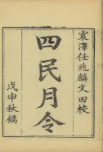 震澤任兆麟文田校
四民月令
戊申秋鐫